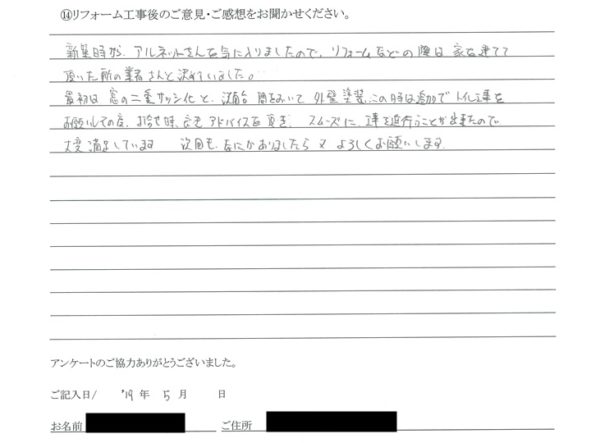 ⑭リフォーム工事後のご意見・ご感想をお聞かせください。
新築時から アルネットさんを気に入りましたので、リフォームなどの際は 家を建てて
頂いた所の業者さんと決めていました。
最初は 窓の二重サッシ化と、 間をおいて 外壁塗装、この時は追加で トイレ工事を
お願いしての 打合せ時、 アドバイスを頂き、 スムーズに 工事を進行うことが出来たので
大変満足しています 次回も なにかありましたら 又 よろしくお願いします
アンケートのご協力ありがとうございました。
ご記入日/ '19 年 5 月 日
お名前 ご住所